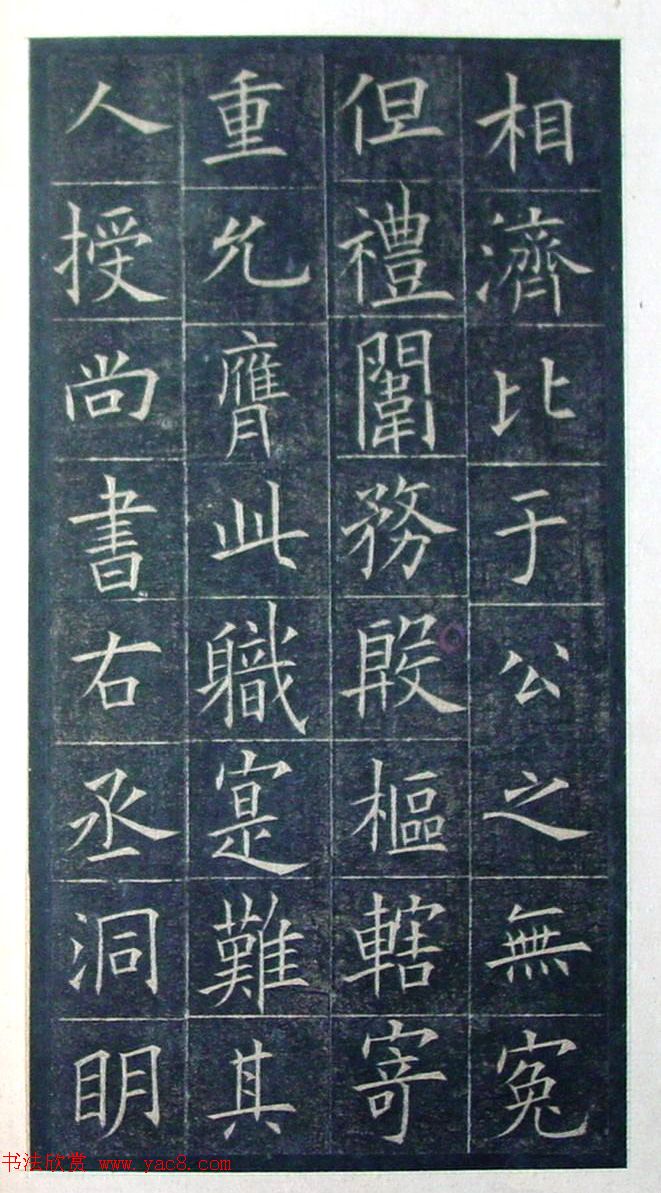 相濟比于公之無寃
但禮闈務殷樞轄寄
重允膺此職寔難其
人授尚書右丞洞明
书法欣赏 www.yac8.com